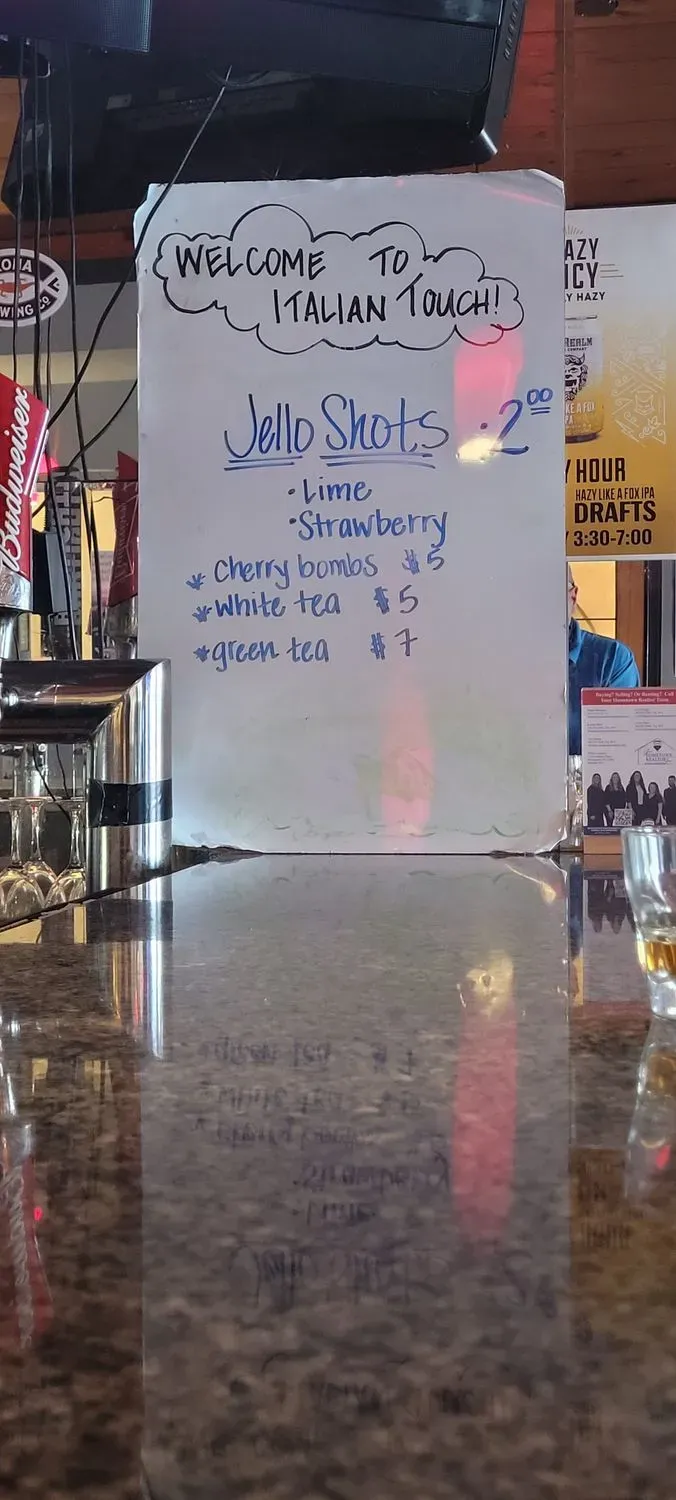 WELCOME TO
ITALIAN TOUCH!
Jello Shots · 2 00
• Lime
• Strawberry
* Cherry bombs $5
* white tea $5
* green tea $7
Budweiser
OMA
WING CO
AZY
ICY
Y HAZY
REALM
KE A FOX
PA
Y HOUR
HAZY LIKE A FOX IPA
DRAFTS
3:30-7:00
Buying? Selling? Or Renting? Call
Your Hometown Realtor Team
HOMETOWN
REALTORS